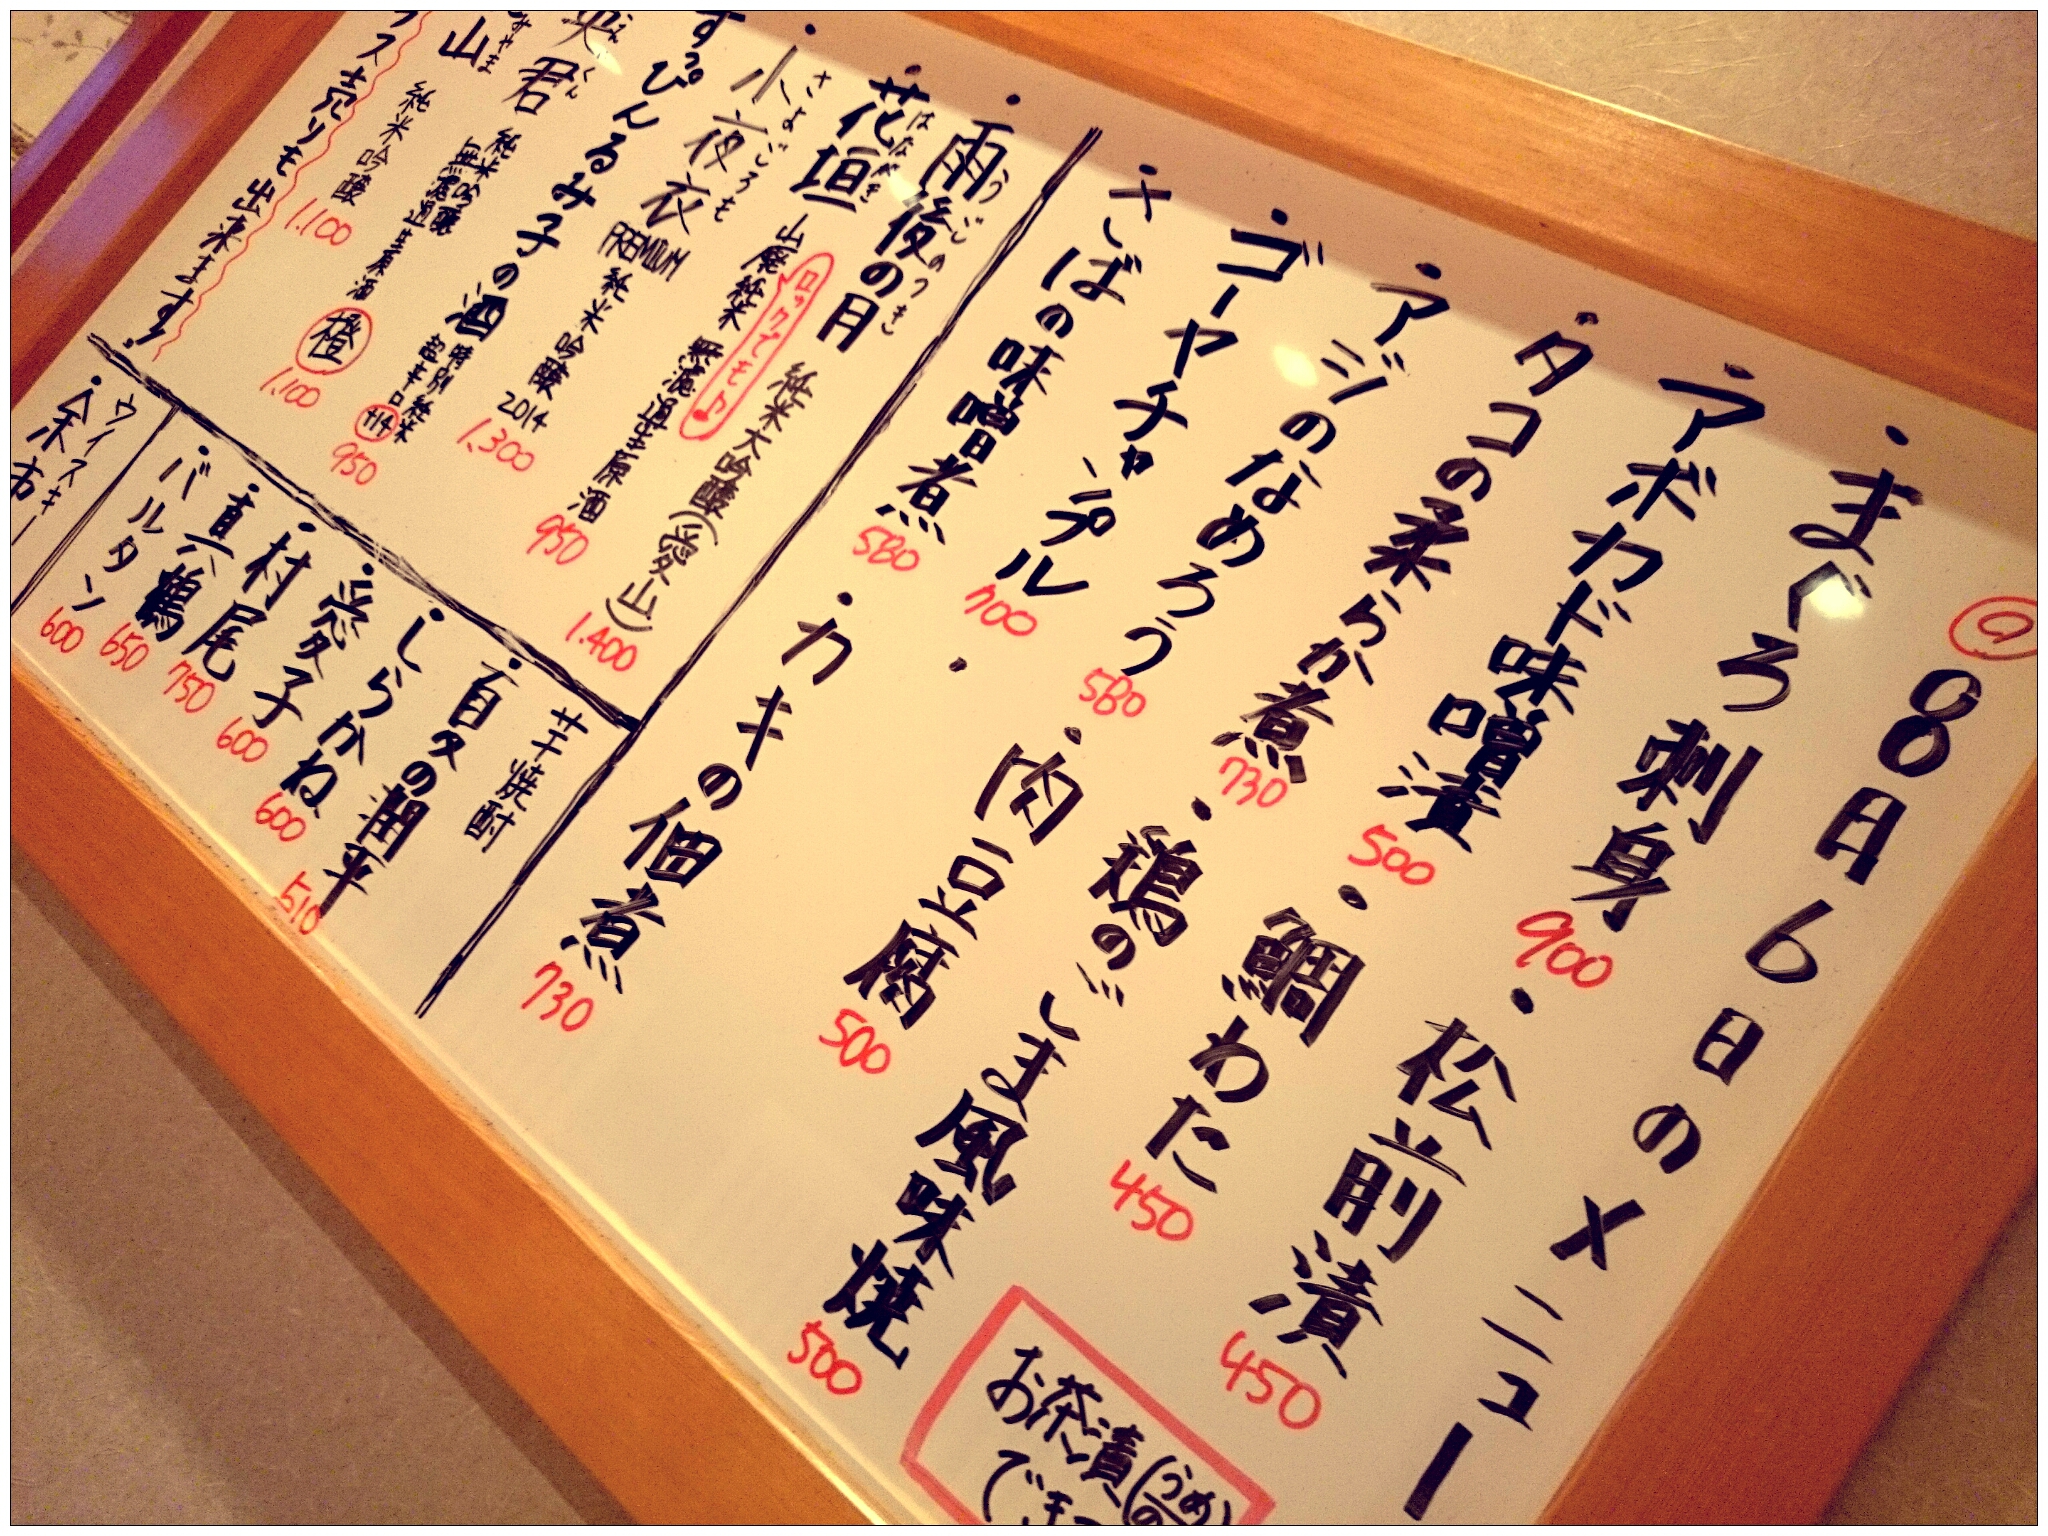 8月6日のメニュー
・まぐろ刺身 900
・アボカド味噌漬 500
・松前漬 450
・タコの柔らか煮 730
・鯛わた 450
・アジのなめろう 580
・鶏のごま風味焼 500
・ゴーヤチャンプル 700
・肉豆腐 500
・さばの味噌煮 580
・カキの佃煮 730
お茶漬(うめ
でき
・雨後の月 純米大吟醸(愛山) 1,400
うごのつき
・花垣 山廃純米 無濾過生原酒 950
はながき
ロックでも♪
・小夜衣 PREMIUM 純米吟醸 2014 1,300
さよごろも
すっぴんるみ子の酒 特別純米 超辛口 +14 950
英君 純米吟醸 無濾過生原酒 橙 1,100
くん
山 純米吟醸 1,100
やま
ラス売りも出来ます!
芋焼酎
・百夕の潤平 510
・しらかね 600
・愛子 600
・村尾 750
・真鶴 650
・バルタン 600
ウイスキー
・余市